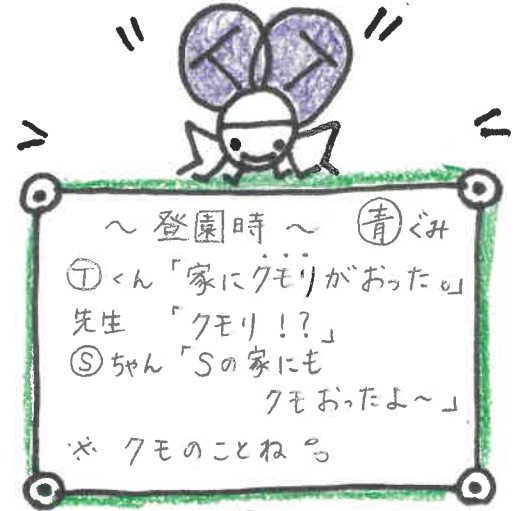 ～ 登園時 ～ 青ぐみ
Ⓣくん「家にクモリがおった。」
先生 「クモリ！？」
Ⓢちゃん「Sの家にも
クモおったよ～」
※ クモのことね。